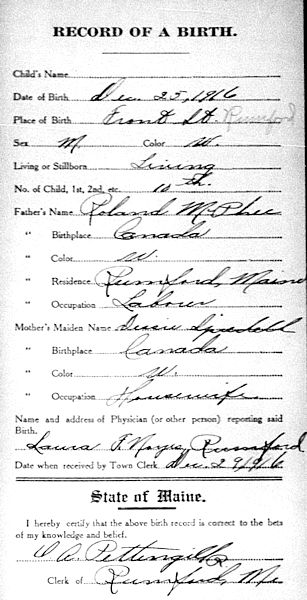 RECORD OF A BIRTH.
Child's Name
Date of Birth Dec. 25, 1916
Place of Birth Front St. Rumford
Sex M. Color W.
Living or Stillborn Living
No. of Child, 1st, 2nd, etc. 10th.
Father's Name Roland McPhee
" Birthplace Canada
" Color W.
" Residence Rumford, Maine
" Occupation Laborer
Mother's Maiden Name
" Birthplace Canada
" Color W.
" Occupation Housewife
Name and address of Physician (or other person) reporting said
Birth.
Laura P. Noyes, Rumford
Date when received by Town Clerk Dec. 29, 1916
State of Maine.
I hereby certify that the above birth record is correct to the bets
of my knowledge and belief.
O. A. Pettengill
Clerk of Rumford, Me.